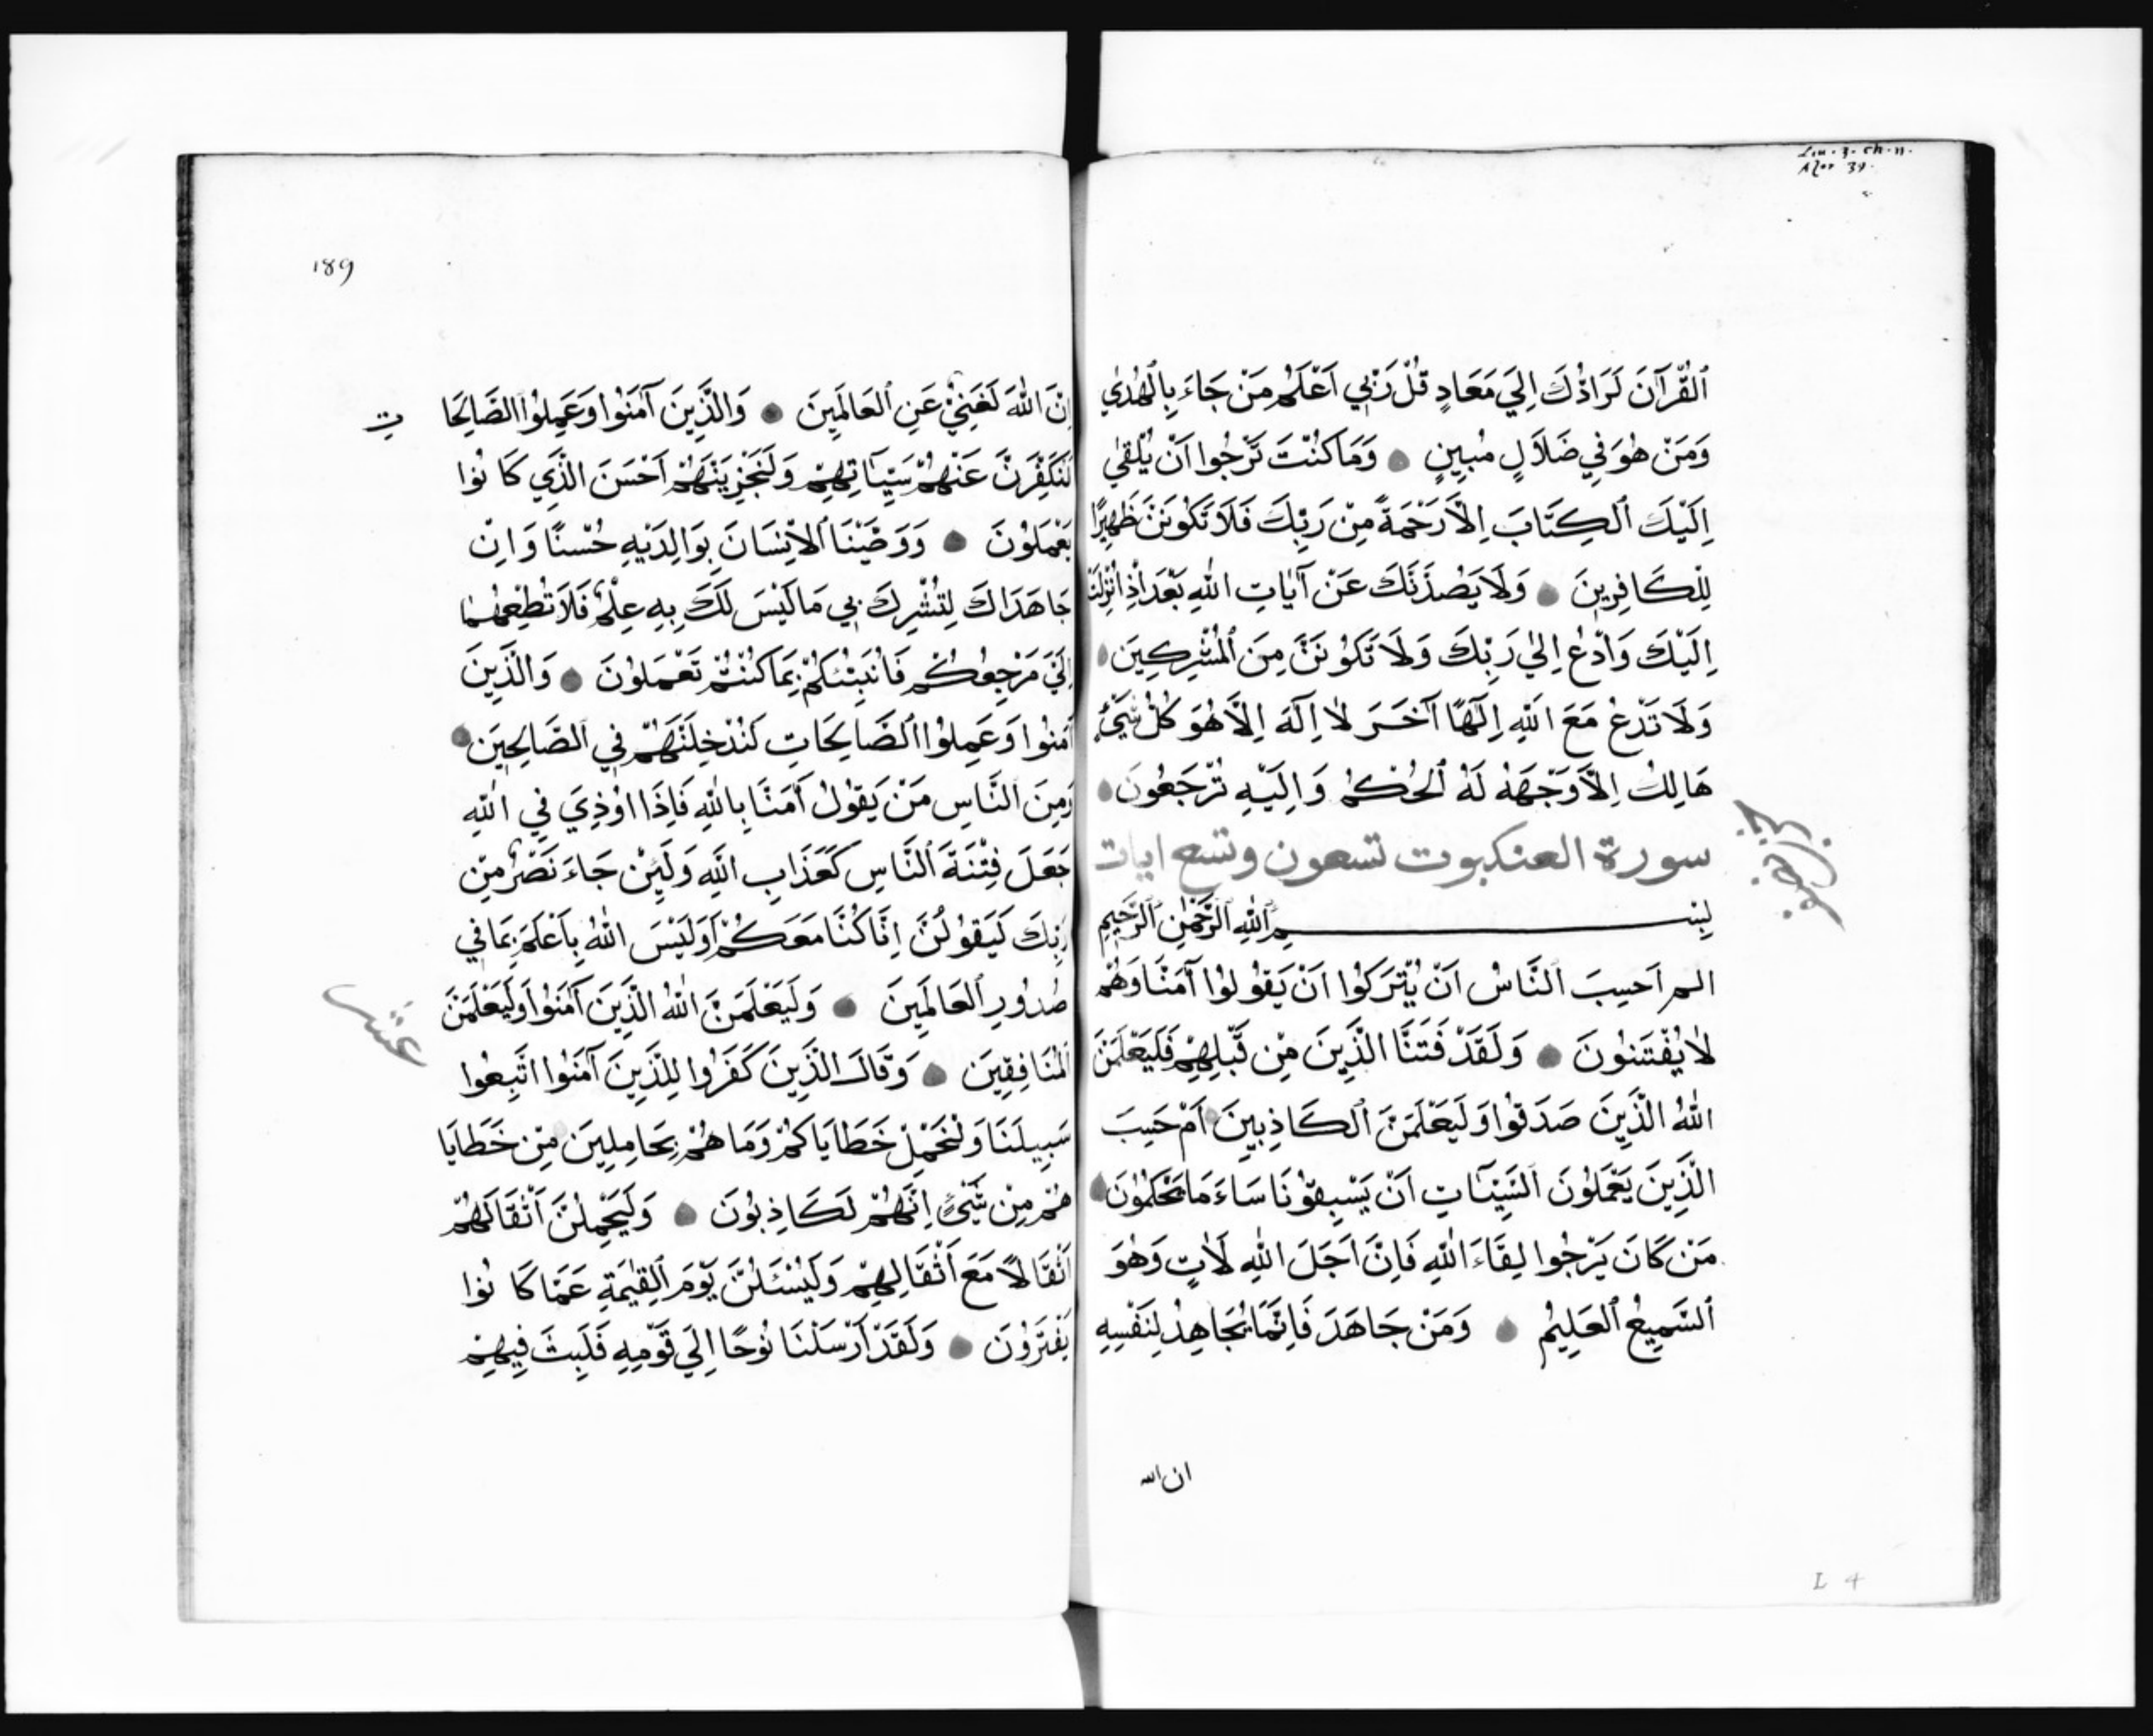 Liu. 3. ch. 11.
Azor 39.
ٱلْقُرْآنَ لَرَادُّكَ اِلَي مَعَادٍ قُلْ رَبِّي اَعْلَمُ مَنْ جَاءَ بِالْهُدٰي
وَمَنْ هُوَ فِي ضَلَالٍ مُبِينٍ ۝ وَمَا كُنْتَ تَرْجُوا اَنْ يُلْقٰي
اِلَيْكَ ٱلْكِتَابَ اِلَّا رَحْمَةً مِنْ رَبِّكَ فَلَا تَكُونَنَّ ظَهِيرًا
لِلْكَافِرِينَ ۝ وَلَا يَصُدَّنَّكَ عَنْ آيَاتِ اللهِ بَعْدَ اِذْ اُنْزِلَتْ
اِلَيْكَ وَادْعُ اِلٰي رَبِّكَ وَلَا تَكُونَنَّ مِنَ ٱلْمُشْرِكِينَ ۝
وَلَا تَدْعُ مَعَ اللهِ اِلٰهًا آخَرَ لَا اِلٰهَ اِلَّا هُوَ كُلُّ شَيْءٍ
هَالِكٌ اِلَّا وَجْهَهُ لَهُ ٱلْحُكْمُ وَاِلَيْهِ تُرْجَعُونَ ۝
سورة العنكبوت تسعون وتسع ايات
بِسْمِ ٱللهِ ٱلرَّحْمٰنِ ٱلرَّحِيمِ
الم اَحَسِبَ ٱلنَّاسُ اَنْ يُتْرَكُوا اَنْ يَقُولُوا آمَنَّا وَهُمْ
لَا يُفْتَنُونَ ۝ وَلَقَدْ فَتَنَّا الَّذِينَ مِنْ قَبْلِهِمْ فَلَيَعْلَمَنَّ
اللهُ الَّذِينَ صَدَقُوا وَلَيَعْلَمَنَّ ٱلْكَاذِبِينَ ۝ اَمْ حَسِبَ
الَّذِينَ يَعْمَلُونَ ٱلسَّيِّئَاتِ اَنْ يَسْبِقُونَا سَاءَ مَا يَحْكُمُونَ ۝
مَنْ كَانَ يَرْجُوا لِقَاءَ اللهِ فَاِنَّ اَجَلَ اللهِ لَاتٍ وَهُوَ
ٱلسَّمِيعُ ٱلْعَلِيمُ ۝ وَمَنْ جَاهَدَ فَاِنَّمَا يُجَاهِدُ لِنَفْسِهِ
ان الله
L 4
189
اِنَّ اللهَ لَغَنِيٌّ عَنِ ٱلْعَالَمِينَ ۝ وَالَّذِينَ آمَنُوا وَعَمِلُوا الصَّالِحَا
ت
لَنُكَفِّرَنَّ عَنْهُمْ سَيِّئَاتِهِمْ وَلَنَجْزِيَنَّهُمْ اَحْسَنَ الَّذِي كَانُوا
يَعْمَلُونَ ۝ وَوَصَّيْنَا ٱلْاِنْسَانَ بِوَالِدَيْهِ حُسْنًا وَاِنْ
جَاهَدَاكَ لِتُشْرِكَ بِي مَا لَيْسَ لَكَ بِهِ عِلْمٌ فَلَا تُطِعْهُمَا
اِلَيَّ مَرْجِعُكُمْ فَاُنَبِّئُكُمْ بِمَا كُنْتُمْ تَعْمَلُونَ ۝ وَالَّذِينَ
آمَنُوا وَعَمِلُوا ٱلصَّالِحَاتِ لَنُدْخِلَنَّهُمْ فِي ٱلصَّالِحِينَ ۝
وَمِنَ ٱلنَّاسِ مَنْ يَقُولُ آمَنَّا بِاللهِ فَاِذَا اُوذِيَ فِي اللهِ
جَعَلَ فِتْنَةَ ٱلنَّاسِ كَعَذَابِ اللهِ وَلَئِنْ جَاءَ نَصْرٌ مِنْ
رَبِّكَ لَيَقُولُنَّ اِنَّا كُنَّا مَعَكُمْ اَوَلَيْسَ اللهُ بِاَعْلَمَ بِمَا فِي
صُدُورِ ٱلْعَالَمِينَ ۝ وَلَيَعْلَمَنَّ اللهُ الَّذِينَ آمَنُوا وَلَيَعْلَمَنَّ
عشر
ٱلْمُنَافِقِينَ ۝ وَقَالَ الَّذِينَ كَفَرُوا لِلَّذِينَ آمَنُوا اتَّبِعُوا
سَبِيلَنَا وَلْنَحْمِلْ خَطَايَاكُمْ وَمَا هُمْ بِحَامِلِينَ مِنْ خَطَايَا
هُمْ مِنْ شَيْءٍ اِنَّهُمْ لَكَاذِبُونَ ۝ وَلَيَحْمِلُنَّ اَثْقَالَهُمْ
اَثْقَالًا مَعَ اَثْقَالِهِمْ وَلَيُسْئَلُنَّ يَوْمَ ٱلْقِيٰمَةِ عَمَّا كَانُوا
يَفْتَرُونَ ۝ وَلَقَدْ اَرْسَلْنَا نُوحًا اِلَي قَوْمِهِ فَلَبِثَ فِيهِمْ